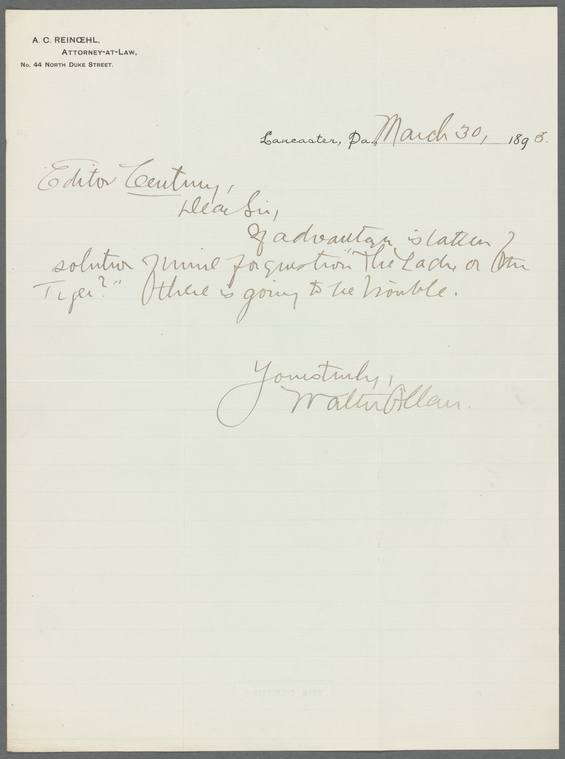 A. C. REINŒHL,
ATTORNEY-AT-LAW,
No. 44 NORTH DUKE STREET.
Lancaster, Pa., March 30, 1893.
Editor Century,
Dear Sir,
If advantage is taken of
solution of mine for question "The Lady or the
Tiger?" there is going to be trouble.
Yours truly,
Walter Allan.